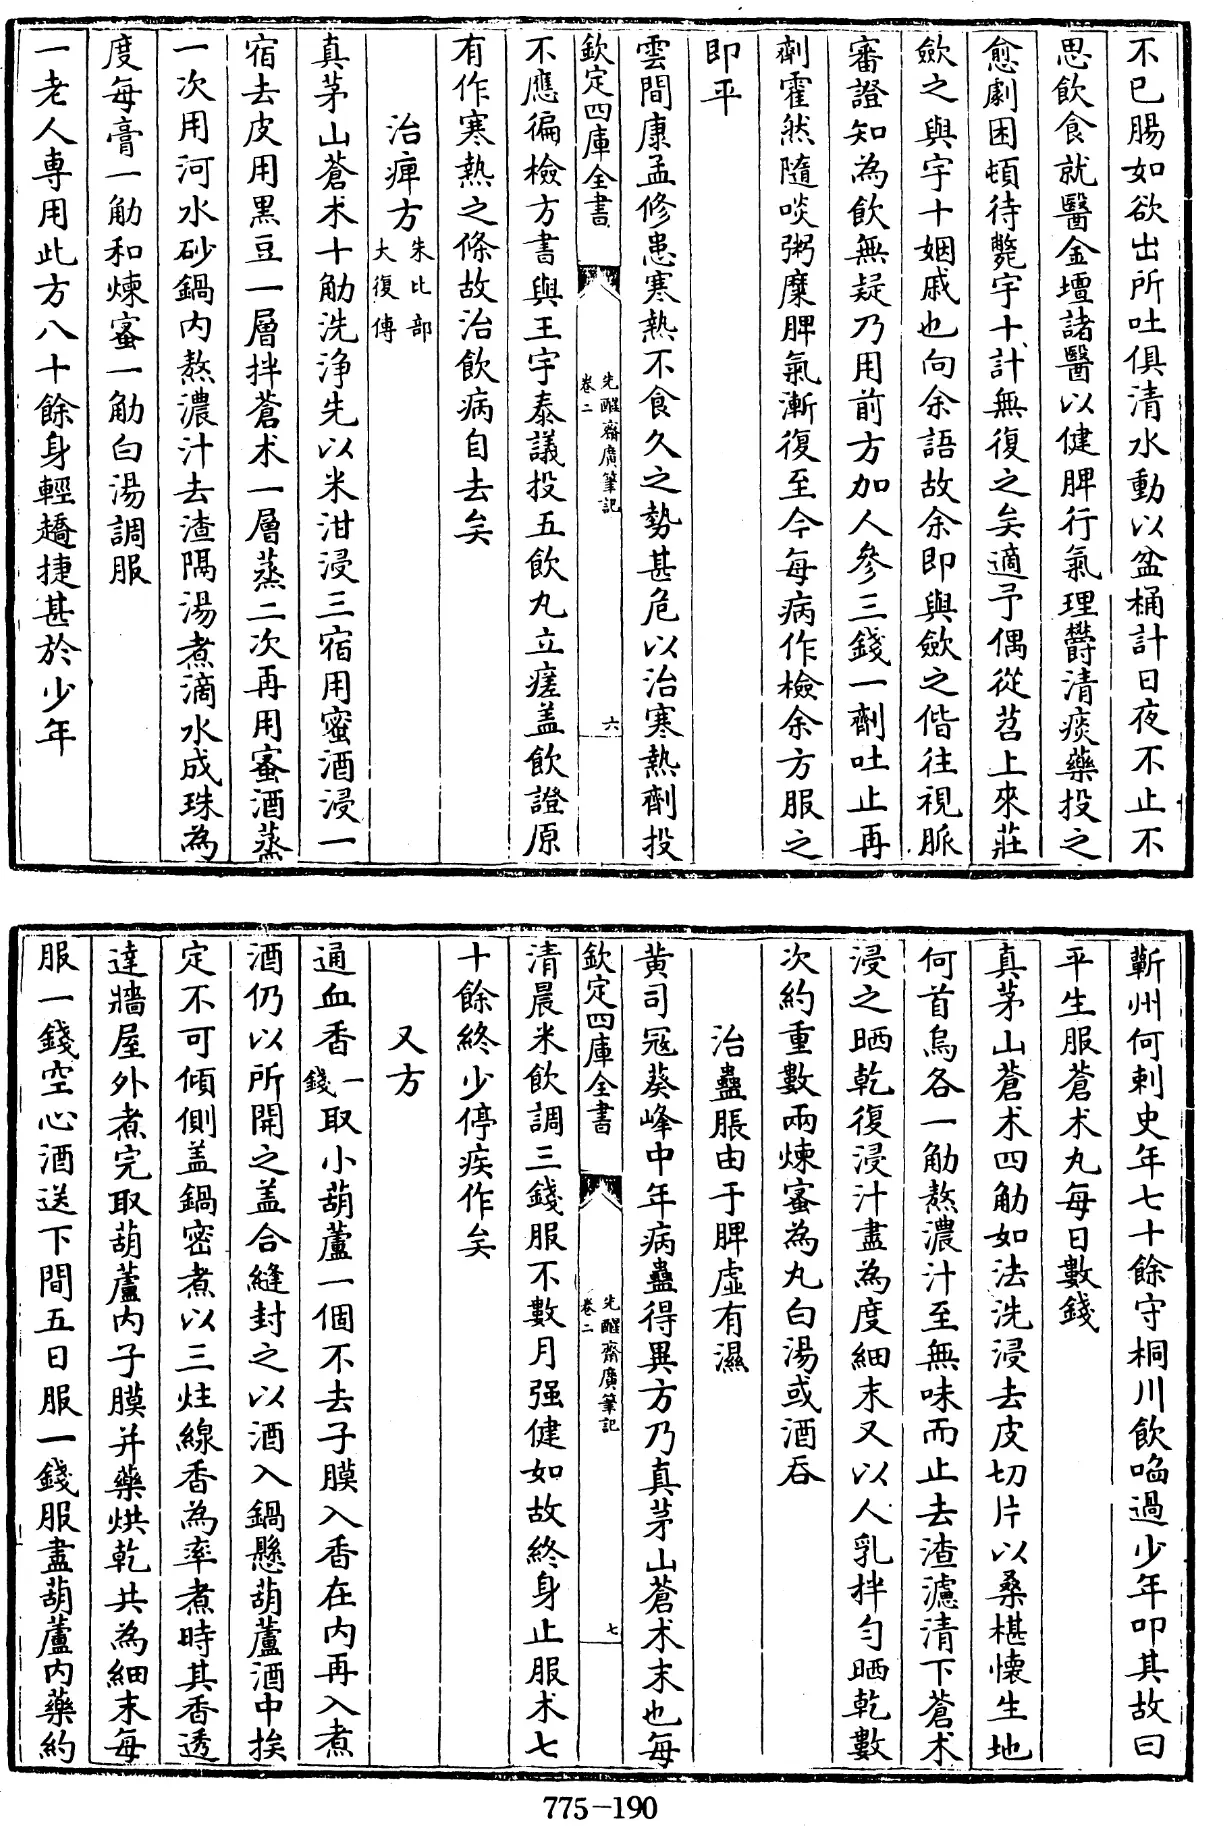 不已腸如欲出所吐俱清水動以盆桶計日夜不止不
思飲食就醫金壇諸醫以健脾行氣理欝清痰藥投之
愈劇困頓待斃宇十計無復之矣適予偶從苕上來莊
歛之與宇十姻戚也向余語故余即與歛之偕往視脈
審證知為飲無疑乃用前方加人參三錢一劑吐止再
劑霍然隨啖粥糜脾氣漸復至今每病作檢余方服之
即平
雲間康孟修患寒熱不食久之勢甚危以治寒熱劑投
欽定四庫全書
先醒齋廣筆記
卷二
六
不應徧檢方書與王宇泰議投五飲丸立瘥盖飲證原
有作寒熱之條故治飲病自去矣
治痺方朱比部大復傳
真茅山蒼术十觔洗淨先以米泔浸三宿用蜜酒浸一
宿去皮用黑豆一層拌蒼术一層蒸二次再用蜜酒蒸
一次用河水砂鍋内熬濃汁去渣隔湯煮滴水成珠為
度每膏一觔和煉蜜一觔白湯調服
一老人專用此方八十餘身輕趫捷甚於少年
蘄州何刺史年七十餘守桐川飲啗過少年叩其故曰
平生服蒼术丸每日數錢
真茅山蒼术四觔如法洗浸去皮切片以桑椹懷生地
何首烏各一觔熬濃汁至無味而止去渣濾清下蒼术
浸之晒乾復浸汁盡為度細末又以人乳拌勻晒乾數
次約重數兩煉蜜為丸白湯或酒吞
治蠱脹由于脾虛有濕
黄司冦葵峰中年病蠱得異方乃真茅山蒼术末也每
欽定四庫全書
先醒齋廣筆記
卷二
七
清晨米飲調三錢服不數月强健如故終身止服术七
十餘終少停疾作矣
又方
通血香一錢取小葫蘆一個不去子膜入香在内再入煮
酒仍以所開之盖合縫封之以酒入鍋懸葫蘆酒中挨
定不可傾側盖鍋密煮以三炷線香為率煮時其香透
達牆屋外煮完取葫蘆内子膜并藥烘乾共為細末每
服一錢空心酒送下間五日服一錢服盡葫蘆内藥約
775-190